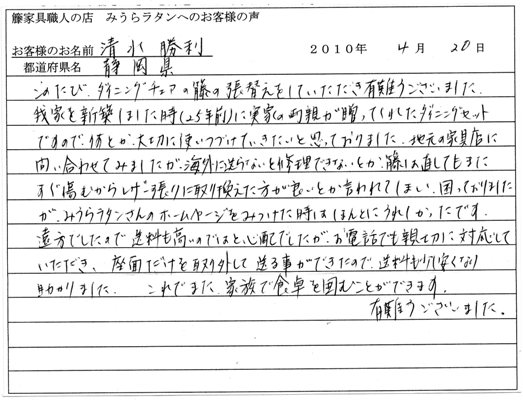 籐家具職人の店　みうらラタンへのお客様の声
お客様のお名前　清水 勝利　2010年　4月　20日
都道府県名　静岡県
このたび、ダイニングチェアの籐の張替えをしていただき有難うございました。
我家を新築しました時(25年前)に実家の両親が贈ってくれたダイニングセット
ですので、何とか大切に使いつづけていきたいと思っておりました。地元の家具店に
問い合わせてみましたが、海外に送らないと修理できないとか、籐は直してもまた
すぐ傷むからレザー張りに取り換えた方が良いとか言われてしまい、困っておりました
が、みうらラタンさんのホームページをみつけた時はほんとにうれしかったです。
遠方でしたので送料も高いのではと心配でしたが、お電話でも親切に対応して
いただき、座面だけを取り外して送る事ができたので、送料も少し安くなり
助かりました。これでまた、家族で食卓を囲むことができます。
有難うございました。